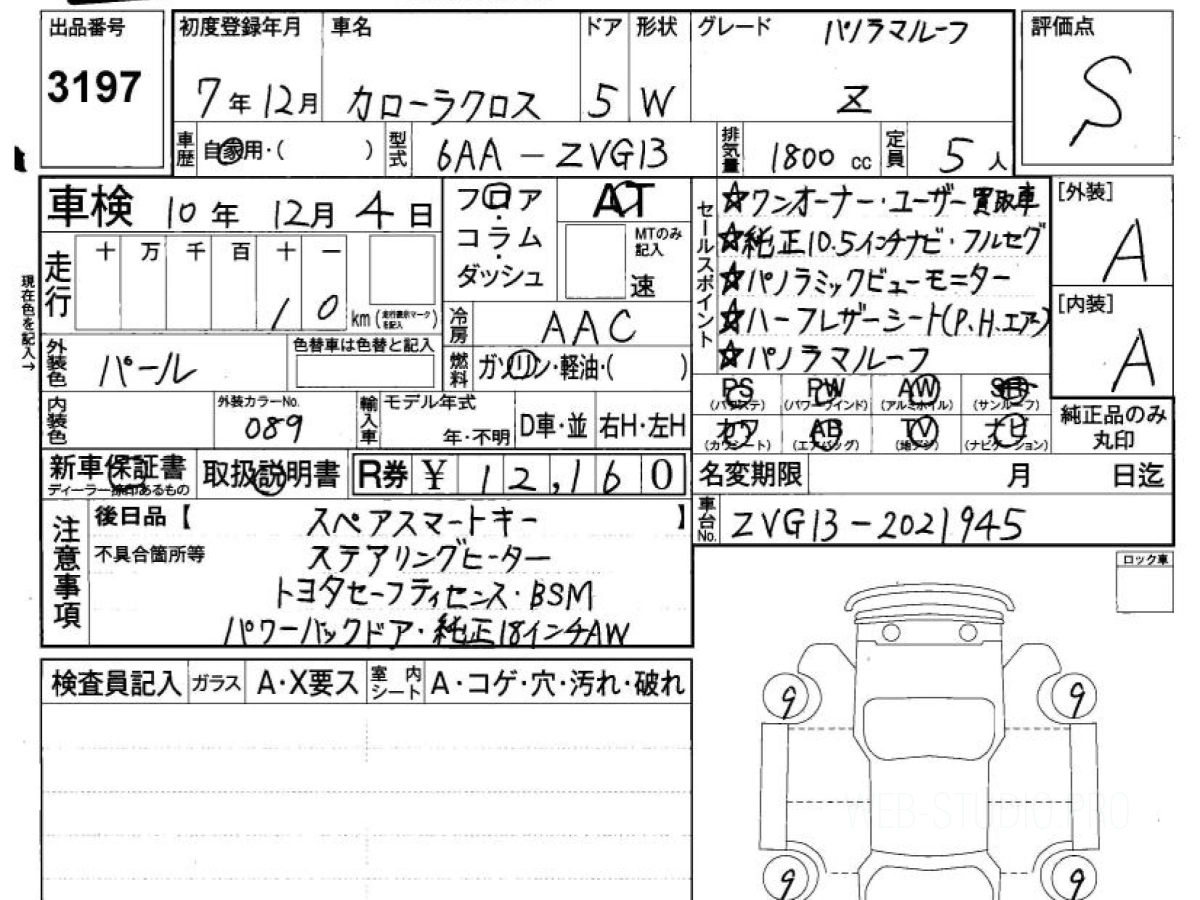 出品番号 初度登録年月 車名 ドア 形状 グレード パノラマルーフ 評価点
3197 7年12月 カローラクロス 5 W Z S
車歴 自家用・( ) 型式 6AA-ZVG13 排気量 1800 cc 定員 5人
車検 10年 12月 4日 フロア・コラム・ダッシュ AT MTのみ記入 速
セールスポイント
☆ワンオーナー・ユーザー買取車
☆純正10.5インチナビ・フルセグ
☆パノラミックビューモニター
☆ハーフレザーシート(P、H、エアー)
☆パノラマルーフ
[外装] A
[内装] A
現在色を記入→
走行 十 万 千 百 十 一
10 km (走行表示マークを記入)
冷房 AAC
外装色 パール 色替車は色替と記入 燃料 ガソリン・軽油・( )
PS (パワステ) PW (パワーウインド) AW (アルミホイル) SR (サンルーフ)
カワ (カワシート) AB (エアバッグ) TV (地デジ) ナビ (ナビゲーション)
純正品のみ丸印
内装色 外装カラーNo. 089 輸入車 モデル年式 年・不明 D車・並 右H・左H
新車保証書 ディーラー捺印あるもの 取扱説明書 R券 ¥ 12,160 名変期限 月 日迄
車台No. ZVG13-2021945
注意事項 後日品【 スペアスマートキー 】
不具合箇所等 ステアリングヒーター
トヨタセーフティセンス・BSM
パワーバックドア・純正18インチAW
ロック車
検査員記入 ガラス A・X要ス 室内シート A・コゲ・穴・汚れ・破れ
9 9
WEB-STUDIO.PRO
9 9